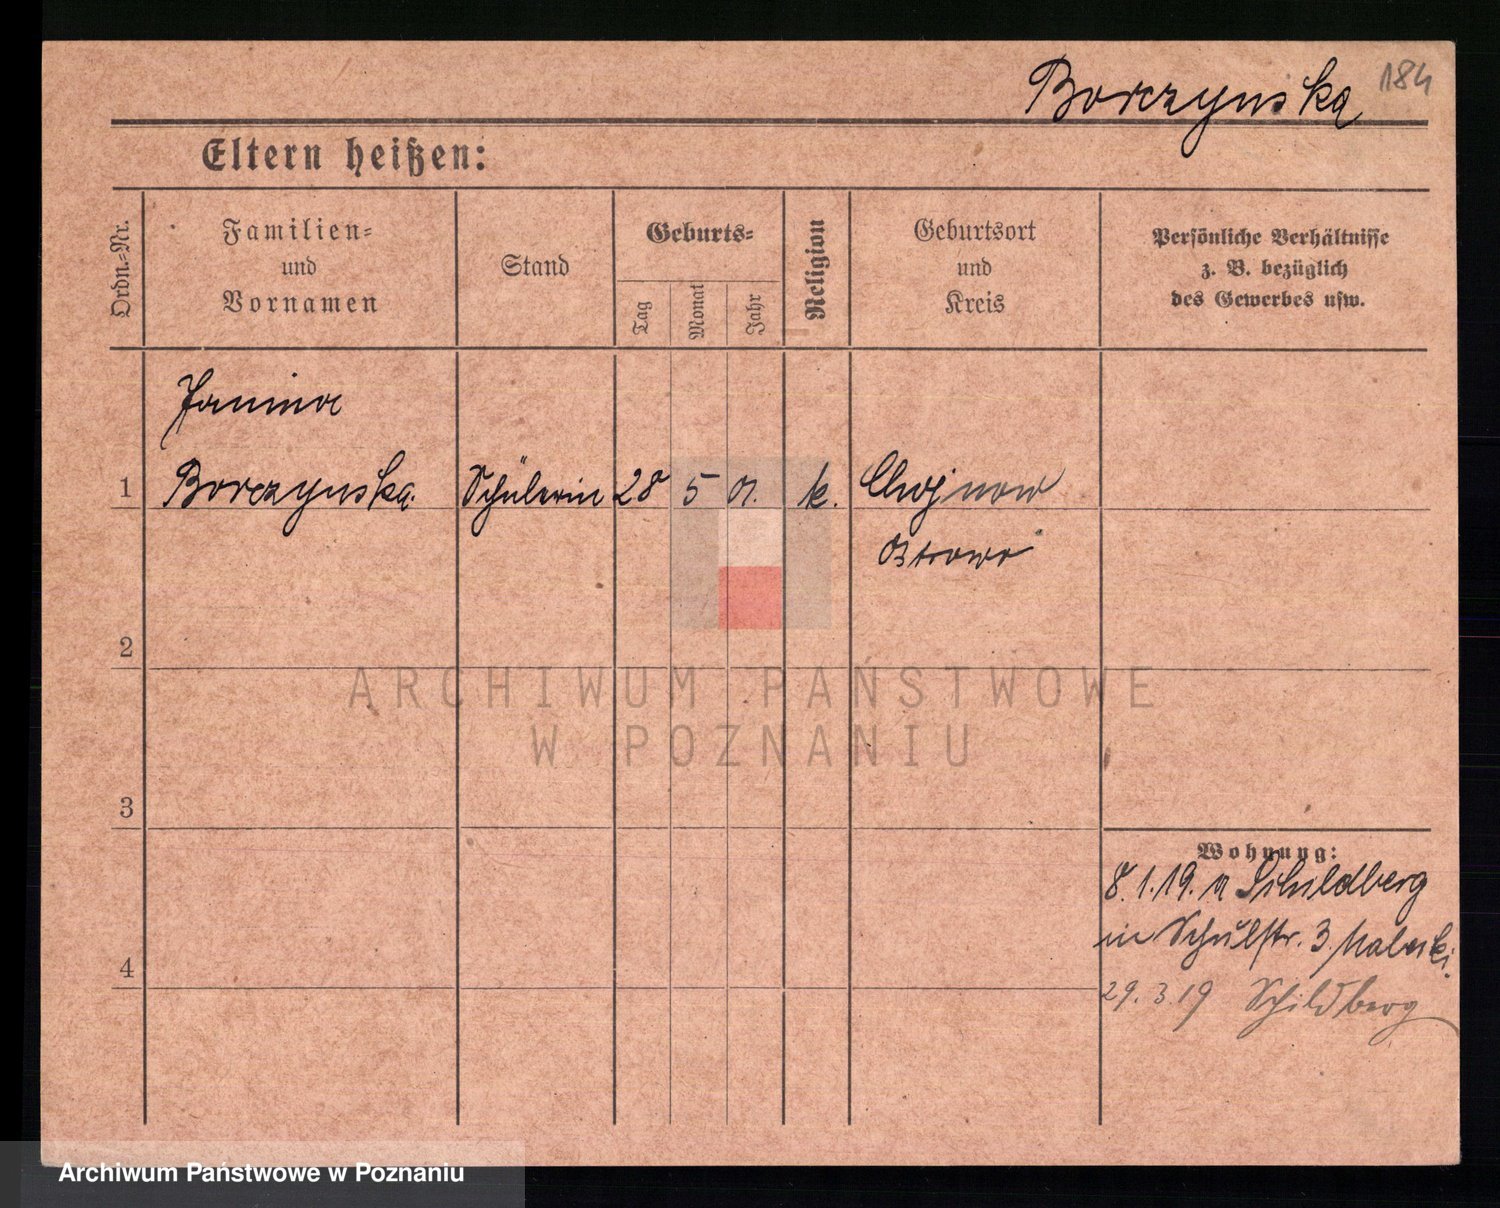 Borczynska 184
Eltern heißen:
Ordn.-Nr.
Familien-
und
Vornamen
Stand
Geburts-
Tag
Monat
Jahr
Religion
Geburtsort
und
Kreis
Persönliche Verhältnisse
z. B. bezüglich
des Gewerbes usw.
Janina
1 Borczynska. Schülerin 28 5 01. k. Chojnow
Ostrowo
2
3
4
Wohnung:
8.1.19. a Schildberg
in Schulstr. 3.
29.3 19 Schildberg
ARCHIWUM PAŃSTWOWE
W POZNANIU
Archiwum Państwowe w Poznaniu